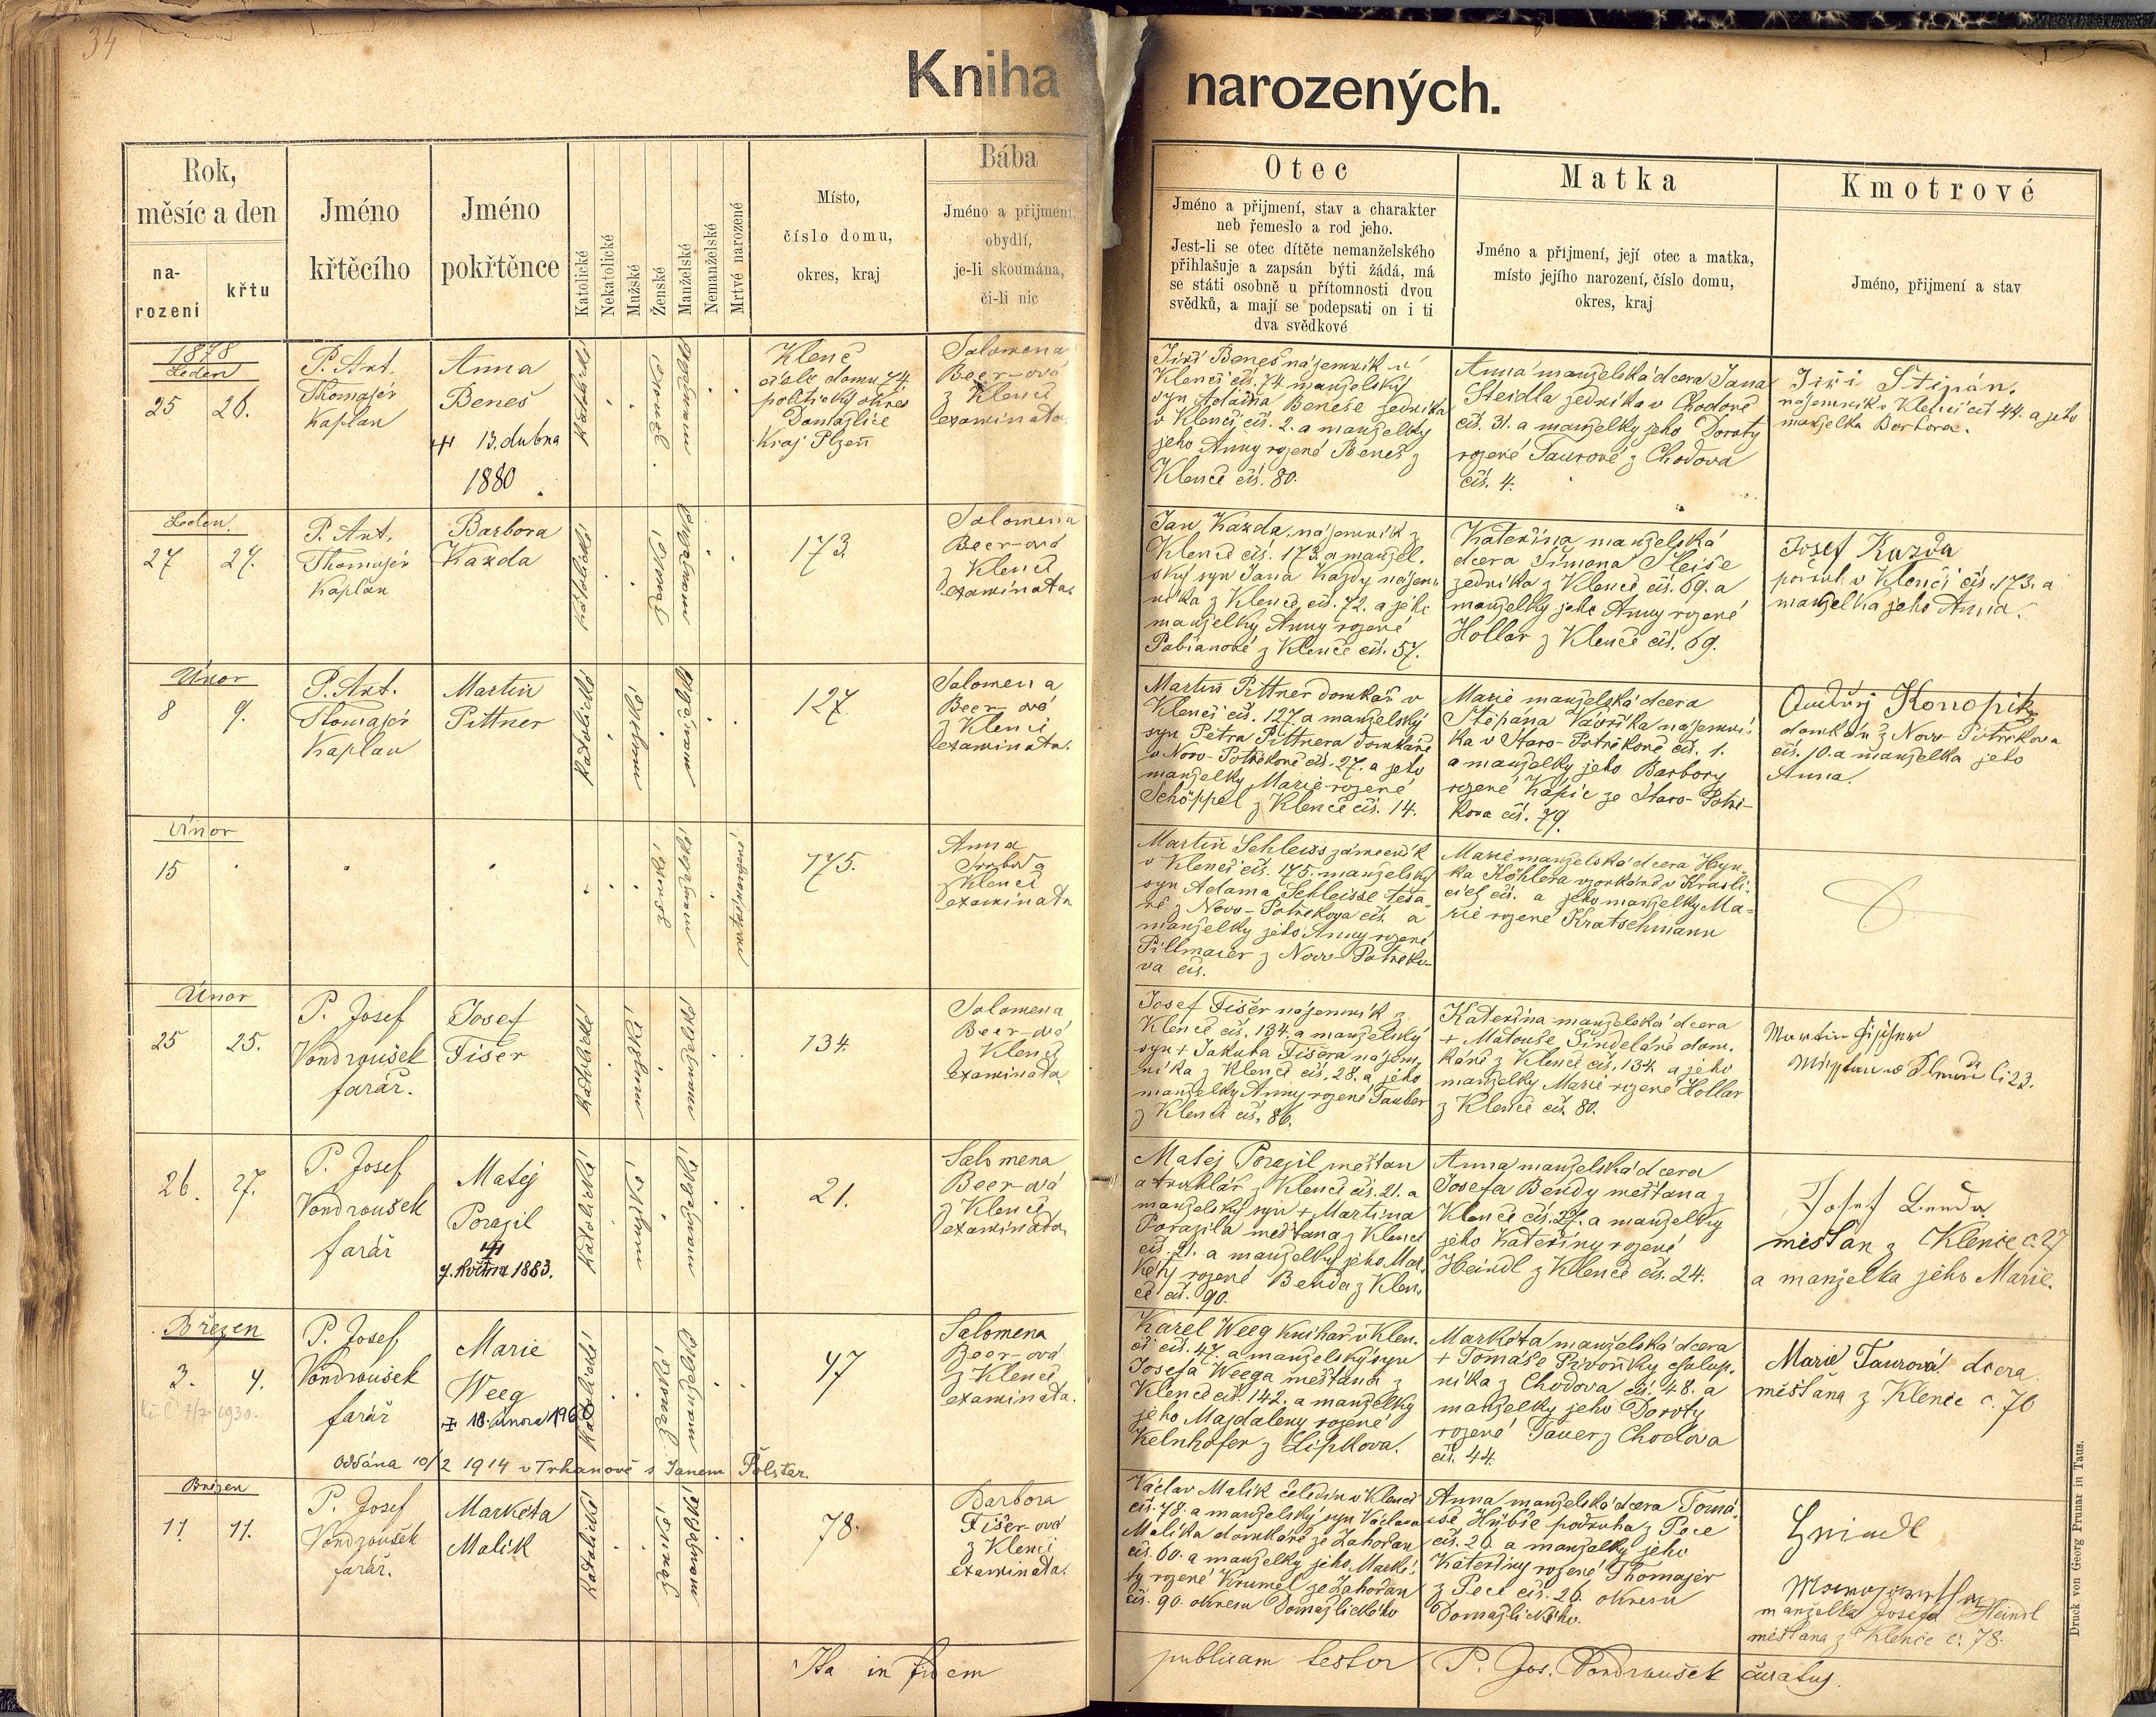 34
Kniha narozených.
Rok,
měsíc a den
na-
rození
křtu
Jméno
křtěcího
Jméno
pokřtěnce
Katolické
Nekatolické
Mužské
Ženské
Manželské
Nemanželské
Mrtvé narozené
Místo,
číslo domu,
okres, kraj
Bába
Jméno a přijmení,
obydlí,
je-li skoumána,
či-li nic
Otec
Jméno a přijmení, stav a charakter
neb řemeslo a rod jeho.
Jest-li se otec dítěte nemanželského
přihlašuje a zapsán býti žádá, má
se státi osobně u přítomnosti dvou
svědků, a mají se podepsati on i ti
dva svědkové
Matka
Jméno a příjmení, její otec a matka,
místo jejího narození, číslo domu,
okres, kraj
Kmotrové
Jméno, přijmení a stav
1878
Leden
25 26.
P. Ant.
Thomajer
Kaplan
Anna
Beneš
13. dubna
1880
katolické
ženské
manželské
Klenč
číslo domu 74.
politický okres
Domažlice
Kraj Plzeň
Salomena
Beer-ová
z Klenčí
examinata.
Jiří Beneš nájemník v
Klenčí čís. 74. manželský
syn Adama Beneše zedníka
v Klenčí čís. 2. a manželky
jeho Anny rozené Beneš z
Klenče čís. 80.
Anna manželská dcera Jana
Steidla zedníka v Chodově
čís. 31. a manželky jeho Doroty
rozené Taurové z Chodova
čís. 4.
Jiří Štipán,
nájemník v Klenčí čís 44. a jeho
manželka Barbora.
Leden.
27 27.
P. Ant.
Thomajer
Kaplan
Barbora
Kazda
katolické
ženské
manželské
173.
Salomena
Beer-ová
z Klenčí
examinata.
Jan Kazda, nájemník z
Klenče čís. 173. a manžel.
ský syn Jana Kazdy nájem-
níka z Klenče čís. 72. a jeho
manželky Anny rozené
Pabianové z Klenče čís. 57.
Kateřina manželská
dcera Šimona Sleiše
zedníka z Klenče čís. 69. a
manželky jeho Anny rozené
Hollar z Klenče čís. 69.
Josef Kazda
podruh v Klenčí čís. 173. a
manželka jeho Anna.
Únor
8 9.
P. Ant.
Thomajer
Kaplan
Martin
Pittner
katolické
mužské
manželské
127.
Salomena
Beer-ová
z Klenčí
examinata.
Martin Pittner domkář v
Klenčí čís. 127. a manželský
syn Petra Pittnera domkáře
v Novo-Potřekově čís. 27. a jeho
manželky Marie rozené
Schöppel z Klenče čís. 14.
Marie manželská dcera
Štěpána Vavříka nájemní-
ka v Staro-Potřekově čís. 1.
a manželky jeho Barbory
rozené Kápic ze Staro-Potře-
kova čís. 79.
Ondřej Konopík
domkář z Novo-Potřekova
čís. 10. a manželka jeho
Anna.
Únor
15
ženské
manželské
mrtvěnarozené
175.
Anna
z Klenčí
examinata
Martin Schleiss zámečník
v Klenčí čís. 175. manželský
syn Adama Schleisse tesa-
ře z Novo-Potřekova čís. a
manželky jeho Anny rozené
Pillmaier z Novo-Potřeko-
va čís.
Marie manželská dcera Hyn-
ka Köhlera v Krasli-
cích čís. a jeho manželky Ma-
rie rozené Kratschmann
Únor
25 25.
P. Josef
Vondroušek
farář.
Josef
Fišer
katolické
mužské
manželské
134.
Salomena
Beer-ová
z Klenčí
examinata.
Josef Fišer nájemník z
Klenče čís. 134. a manželský
syn + Jakuba Fišera nájem-
níka z Klenče čís. 28. a jeho
manželky Anny rozené Tauber
z Klenče čís. 86.
Kateřina manželská dcera
+ Matouše Šindeláře dom.
káře z Klenče čís. 134. a jeho
manželky Marie rozené Hollar
z Klenče čís. 80.
Martin
č 23.
26. 27.
P. Josef
Vondroušek
farář
Matěj
Porazil
7. května 1883.
katolické
mužské
manželské
21.
Salomena
Beer-ová
z Klenče
examinata.
Matěj Porazil měšťan
a truhlář z Klenče čís. 21. a
manželský syn + Martina
Porazila měšťana z Klenče
čís. 21. a manželky jeho Mar-
kéty rozené Benda z Klen-
če čís. 90.
Anna manželská dcera
Josefa Bendy měšťana z
Klenče čís. 27. a manželky
jeho Kateřiny rozené
Heindl z Klenče čís. 24.
Josef Benda
měšťan z Klenče č. 27
a manželka jeho Marie.
Březen
3. 4.
1930.
P. Josef
Vondroušek
farář
Marie
Weeg
18. února 196
katolické
ženské
manželské
47
Salomena
Beer-ová
z Klenčí
examinata.
Karel Weeg knihař v Klen-
čí čís. 47. a manželský syn
Josefa Weega měšťana z
Klenče čís. 142. a manželky
jeho Majdaleny rozené
Kelnhofer z Lipkova.
Markéta manželská dcera
+ Tomáše Pivoňky chalup-
níka z Chodova čís. 48. a
manželky jeho Doroty
rozené Tauer z Chodova
čís. 44.
Marie Taurová dcera
měšťana z Klenče č. 70
Oddána 10/2 1914 v Trhanově s Janem Pölster.
Březen
11 11.
P. Josef
Vondroušek
farář.
Markéta
Malík
katolické
ženské
manželské
78.
Barbora
Fišer-ová
z Klenčí
examinata.
Václav Malík čeledín v Klenčí
čís. 78. a manželský syn Václava
Malíka domkáře ze Zahořan
čís. 60. a manželky jeho Marké-
ty rozené Krumel ze Zahořan
čís. 90. okresu Domažlického
Anna manželská dcera Tomá-
še Hübše podruha z Pece
čís. 26. a manželky jeho
Kateřiny rozené Thomajer
z Pece čís. 26. okresu
Domažlického.
manželka Josefa Heindl
měšťana z Klenče č. 78.
Ita in fidem publicam testor P. Jos. Vondroušek curatus.
Druck von Georg Prunar in Taus.